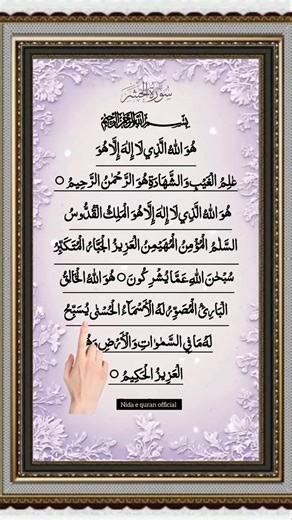 سورة الحشر
بسم الله الرحمن الرحيم
هُوَ اللهُ الَّذِي لَا إِلٰهَ إِلَّا هُوَ
عٰلِمُ الْغَيْبِ وَالشَّهَادَةِ هُوَ الرَّحْمٰنُ الرَّحِيمُ ○
هُوَ اللهُ الَّذِي لَا إِلٰهَ إِلَّا هُوَ الْمَلِكُ الْقُدُّوسُ
السَّلٰمُ الْمُؤْمِنُ الْمُهَيْمِنُ الْعَزِيزُ الْجَبَّارُ الْمُتَكَبِّرُ
سُبْحٰنَ اللهِ عَمَّا يُشْرِكُونَ ○ هُوَ اللهُ الْخَالِقُ
الْبَارِئُ الْمُصَوِّرُ لَهُ الْأَسْمَاءُ الْحُسْنٰى يُسَبِّحُ
لَهُ مَا فِي السَّمٰوٰتِ وَالْأَرْضِ وَهُوَ
الْعَزِيزُ الْحَكِيمُ ○
Nida e quran official